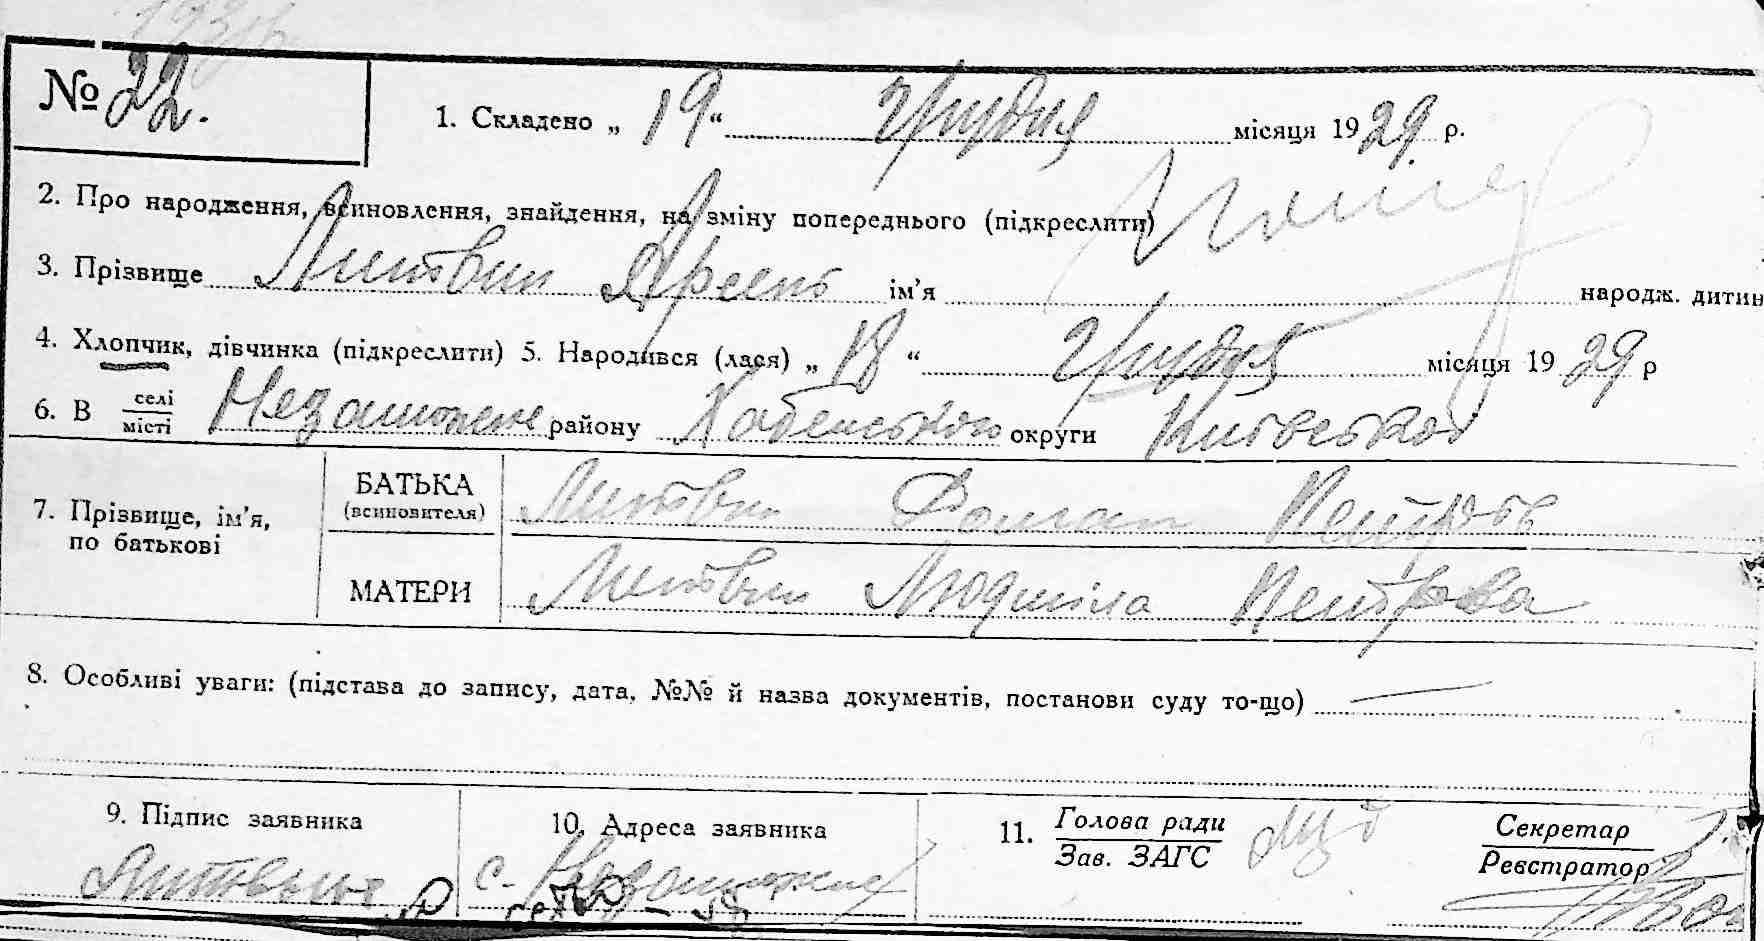 № 22.
1. Складено „ 19 “ грудня місяця 1929 р.
2. Про народження, всиновлення, знайдення, на зміну попереднього (підкреслити)
3. Прізвище Литвин Арсень ім’я народж. дитин
4. Хлопчик, дівчинка (підкреслити) 5. Народився (лася) „ 18 “ грудня місяця 1929 р
6. В селі/місті Незаможне району Хабенського округи Київської
7. Прізвище, ім’я, по батькові
БАТЬКА (всиновителя) Литвин Роман Петров
МАТЕРИ Литвин Людміла Петрова
8. Особливі уваги: (підстава до запису, дата, №№ й назва документів, постанови суду то-що) —
9. Підпис заявника
10. Адреса заявника
с. Незаможне
11. Голова ради
Зав. ЗАГС
Секретар
Реєстратор